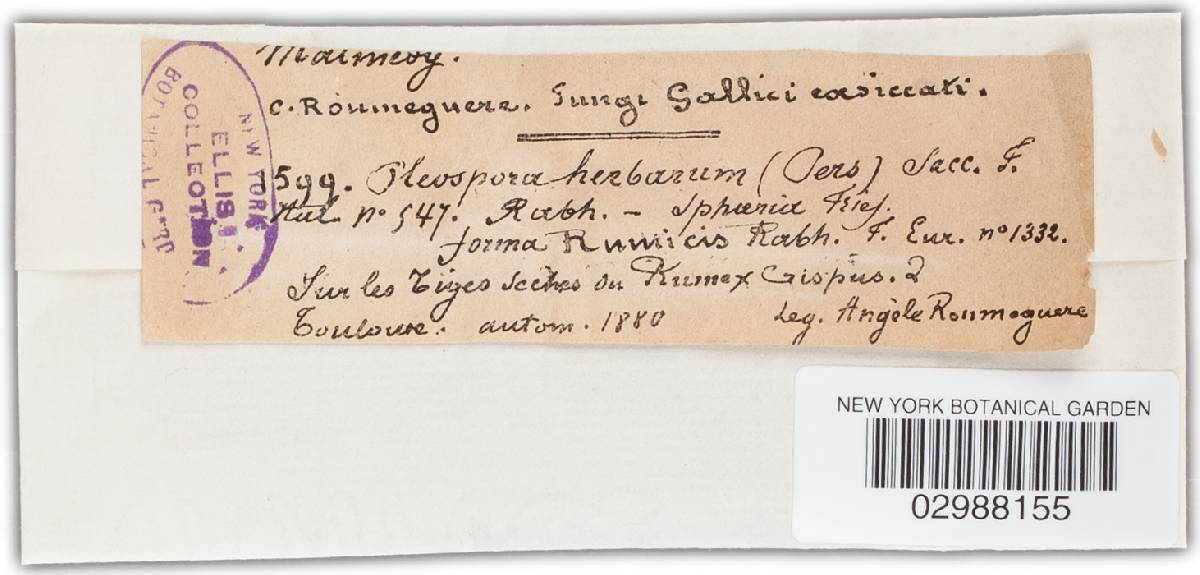 Malmedy.
C. Roumeguere. Fungi Gallici exsiccati.
599. Pleospora herbarum (Pers) Sacc. F.
Ital. n° 547. Rabh. – Sphæria Fries.
forma Rumicis Rabh. F. Eur. n° 1332.
Sur les Tiges sèches du Rumex Crispus.
Toulouse. autom. 1880 Leg. Angèle Roumeguere
NEW YORK
ELLIS
COLLECTION
BOTANICAL GARD
NEW YORK BOTANICAL GARDEN
02988155